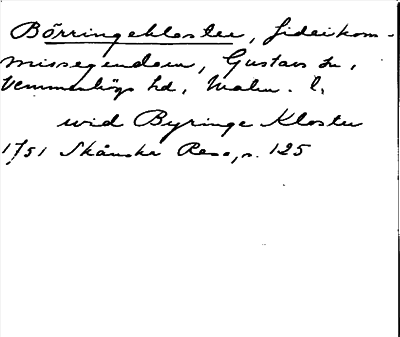 Börringekloster, fideikom-
missegendom, Gustavs sn,
Vemmenhögs hd, Malm. l.
wid Byringe Kloster
1751 Skånska Resa, s. 125